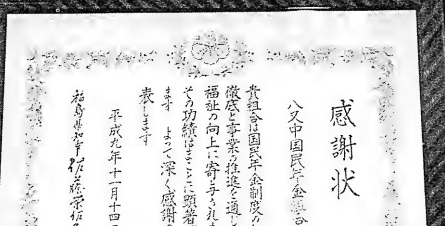 感謝状
八又中国民年金組合
貴組合は国民年金制度の
徹底と事業の推進を通し
福祉の向上に寄与され
その功績はまことに顕著
ます よって深く感謝
表します
平成九年十一月十四
福島県知事 佐藤栄佐